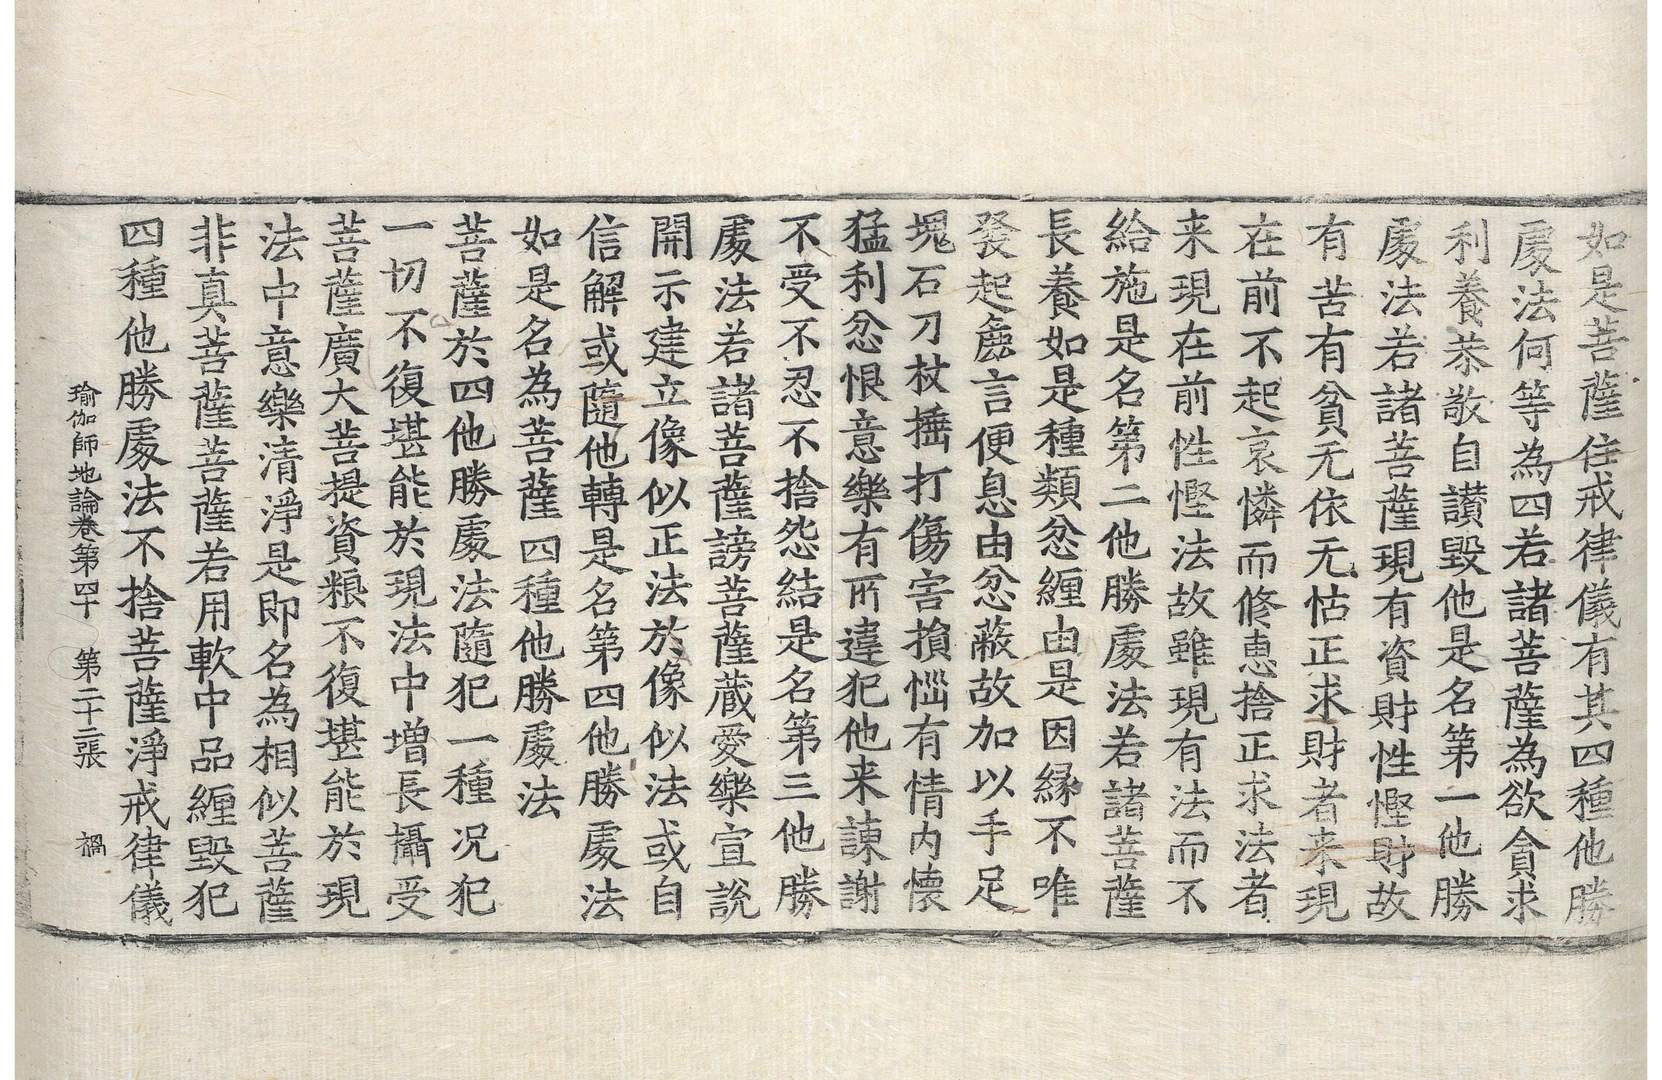 如是菩薩住戒律儀有其四種他勝
處法何等為四若諸菩薩為欲貪求
利養恭敬自讃毀他是名第一他勝
處法若諸菩薩現有資財性慳財故
有苦有貧无依无怙正求財者来現
在前不起哀憐而修惠捨正求法者
来現在前性慳法故雖現有法而不
給施是名第二他勝處法若諸菩薩
長養如是種類忿纏由是因縁不唯
發起麁言便息由忿蔽故加以手足
塊石刀杖捶打傷害損惱有情内懐
猛利忿恨意樂有所違犯他来諫謝
不受不忍不捨怨結是名第三他勝
處法若諸菩薩謗菩薩蔵愛樂宣說
開示建立像似正法於像似法或自
信解或隨他轉是名第四他勝處法
如是名為菩薩四種他勝處法
菩薩於四他勝處法隨犯一種况犯
一切不復堪能於現法中增長攝受
菩薩廣大菩提資粮不復堪能於現
法中意樂清淨是即名為相似菩薩
非真菩薩菩薩若用軟中品纏毀犯
四種他勝處法不捨菩薩淨戒律儀
瑜伽師地論卷第四十 第二十二張 禍